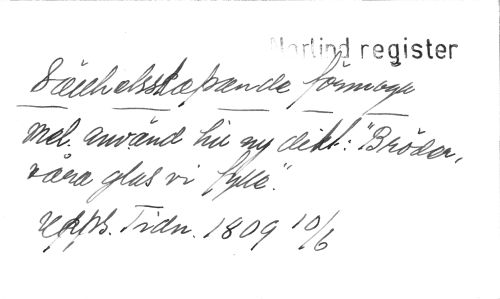 Norlind register
Sällhetsskapande förmåga
mel. använd till ny dikt: "Bröder,
våra glas vi fylle".
Upps. Tidn. 1809 10/6